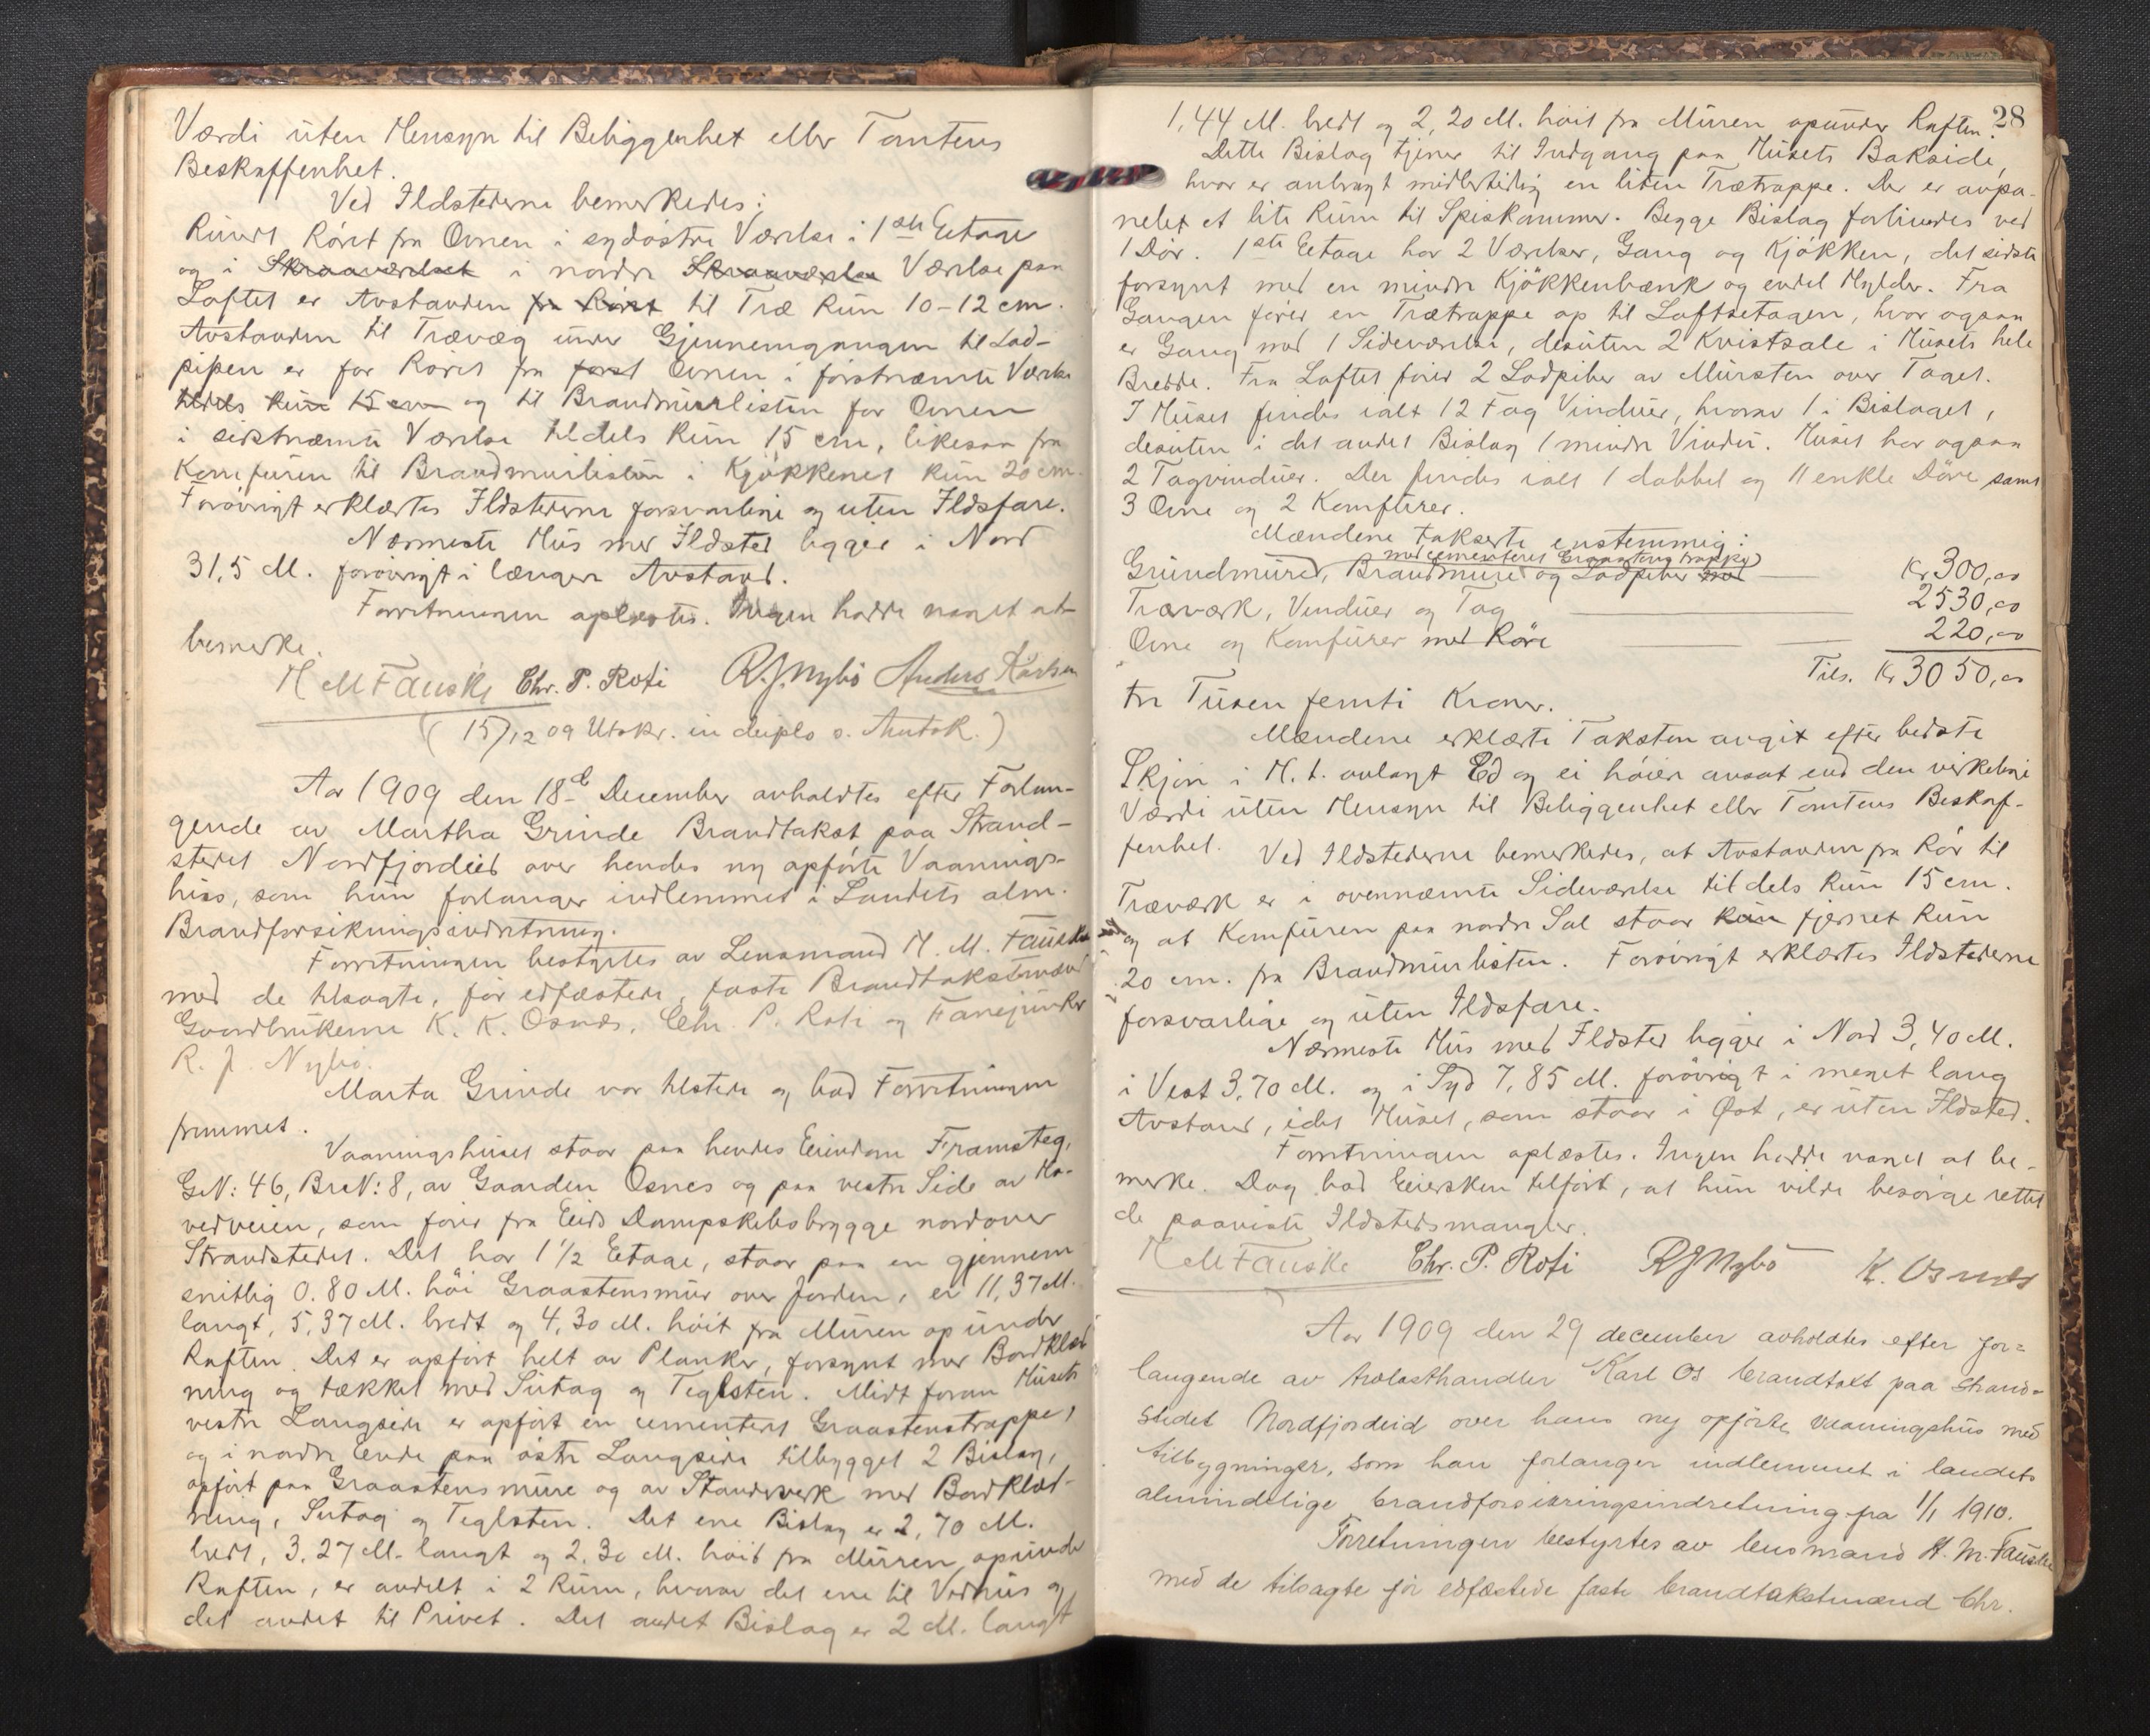 Værdi uten Hensyn til Beliggenhet eller Tomtens
Beskaffenhet.
Ved Ildstederne bemerkedes:
Rundt Røret fra Ovnen i sydøstre Værelse i 1ste Eetage
og i Skraaværelset i nordre Skraaværelse Værelse paa
Loftet er Avstanden fra Røret til Træ kun 10-12 cm.
Avstanden til Trævæg under Gjennemgangen til Lod-
pipen er for Røret fra først Ovnen i førstnæmte Værelse
tildels kun 15 cm og til Brandmurlisten for Ovnen
i sistnæmte Værelse tildels kun 15 cm, likesaa fra
Komfuren til Brandmurlisten i Kjøkkenet kun 20 cm.
Forøvrigt erklærtes Ildstederne forsvarlige og uten Ildsfare.
Nærmeste Hus med Ildsted ligger i Nord
31,5 M. forøvrigt i længere Avstand.
Forretningen oplæstes. Ingen hadde noget at
bemerke.
H M Fauske Chr. P. Roti R. J. Nybö Anders Karlsen
(15/12 09 Utskr. in duplo s. Amtsk.)
Aar 1909 den 18de December avholdtes efter Forlan-
gende av Martha Grinde Brandtakst paa Strand-
stedet Nordfjordeid over hendes ny opførte Vaanings-
hus, som hun forlanger indlemmet i Landets alm.
Brandforsikringsindretning.
Forretningen bestyrtes av Lensmand H. M. Fauske
med de tilsagte, før edfæstede, faste Brandtakstmænd
Gaardbrukerne K. K. Osnæs, Chr. P. Roti og Fanejunker
R. J. Nybö.
Marta Grinde var tilstede og bad Forretningen
fremmet.
Vaaningshuset staar paa hendes Eiendom Framsteg,
G.N: 46, Br.N: 8, av Gaarden Osnes og paa vestre Side av Ho-
vedveien, som fører fra Eids Dampskibsbrygge nordover
Strandstedet. Det har 1 1/2 Eetage, staar paa en gjennem
snitlig 0.80 M. høi Graastensmur over Jorden, er 11,37 M.
langt, 5,37 M. bredt og 4,30 M. høit fra Muren op under
Raften. Det er opført helt av Planker, forsynt med Bordklæd
ning og tækket med Sutag og Teglsten. Midt foran Husets
vestre Langside er opført en cementeret Graastenstrappe,
og i nordre Ende paa østre Langside tilbygget 2 Bislag,
opført paa Graastensmure og av Standerverk med Bordklæd-
ning, Sutag og Teglsten. Det ene Bislag er 2,70 M.
bredt, 3,27 M. langt og 2,30 M. høit fra Muren op under
Raften, er avdelt i 2 Rum, hvorav det ene til Vedhus og
det andet til Privet. Det andet Bislag er 2 M. langt
28
1,44 M. bredt og 2,20 M. høit fra Muren opunder Raften.
Dette Bislag tjener til Indgang paa Husets Bakside,
hvor er anbragt midlertidig en liten Trætrappe. Der er avpa-
nelet et lite Rum til Spiskammer. Begge Bislag forbindes ved
1 Dør. 1ste Eetage har 2 Værelser, Gang og Kjøkken, det sidste
forsynt med en mindre Kjøkkenbænk og endel Hylder. Fra
Gangen fører en Trætrappe op til Loftsetagen, hvor ogsaa
er Gang med 1 Sideværelse, desuten 2 Kvistsale i Husets hele
Bredde. Fra Loftet fører 2 Lodpiber av Mursten over Taget.
I Huset findes ialt 12 Fag Vinduer, hvorav 1 i Bislaget,
desuten i det andet Bislag 1 mindre Vindu. Huset har ogsaa
2 Tagvinduer. Der findes ialt 1 dobbel og 11 enkle Døre samt
3 Ovne og 2 Komfurer.
Mændene takserte enstemmig:
med cementeret Graastenstrappe
Grundmured, Brandmure og Lodpiber med Kr 300,00
Træverk, Vinduer og Tag 2530,00
Ovne og Komfurer med Røre 220,00
Tils. Kr 3050,00
tre Tusen femti Kroner.
Mændene erklærte Taksten avgit efter bedste
Skjøn i H. t. avlagt Ed og ei høiere ansat end den virkelige
Værdi uten Hensyn til Beliggenhet eller Tomtens Beskaf-
fenhet. Ved Ildstederne bemerkedes, at Avstanden fra Rør til
Træværk er i ovennæmte Sideværelse tildels kun 15 cm.
og at Komfuren paa nordre Sal staar kun fjernet kun
20 cm. fra Brandmurlisten. Forøvrigt erklærtes Ildstederne
forsvarlige og uten Ildsfare.
Nærmeste Hus med Ildsted ligger i Nord 3,40 M.
i Vest 3,70 M. og i Syd 7,85 M. forøvrigt i meget lang
Avstand, idet Huset, som staar i Øst, er uten Ildsted.
Forretningen oplæstes. Ingen hadde noget at be-
merke. Dog bad Eiersken tilført, at hun vilde besørge rettet
de paaviste Ildstedsmangler.
H M Fauske Chr. P. Roti R J Nybö K. Osnæs
Aar 1909 den 29 december avholdtes efter for=
langende av trælasthandler Karl Os brandtakt paa strand-
stedet Nordfjordeid over hans ny opførte vaaningshus med
tilbygninger, som han forlanger indlemmet i landets
almindelige brandforsikringsindretning fra 1/1 1910.
Forretningen bestyrtes av lensmand H. M. Fauske
med de tilsagte før edfæstede faste brandtakstmænd Chr.